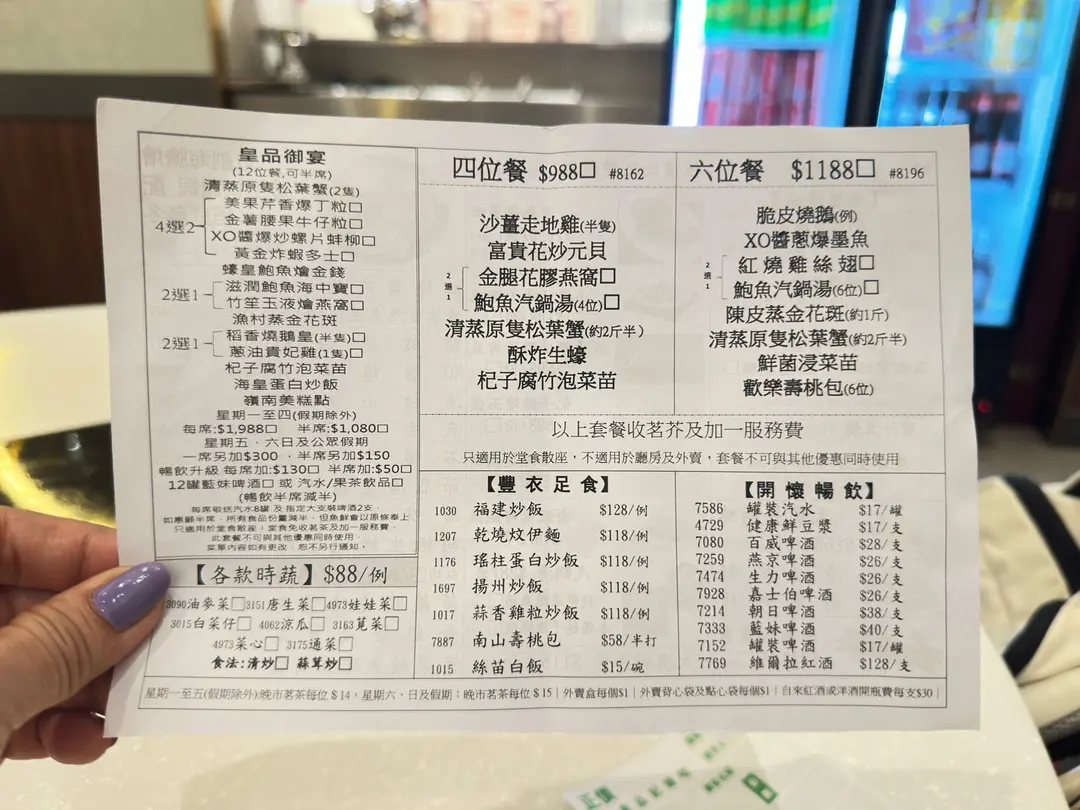 皇品御宴
(12位餐,可半席)
清蒸原隻松葉蟹(2隻)
4選2
美果芹香爆丁粒□
金薯腰果牛仔粒□
XO醬爆炒螺片蚌柳□
黃金炸蝦多士□
蠔皇鮑魚燴金錢
2選1
滋潤鮑魚海中寶□
竹笙玉液燴燕窩□
漁村蒸金花斑
2選1
稻香燒鵝皇(半隻)□
蔥油貴妃雞(1隻)□
杞子腐竹泡菜苗
海皇蛋白炒飯
嶺南美糕點
星期一至四(假期除外)
每席:$1,988□ 半席:$1,080□
星期五、六日及公眾假期
一席另加$300﹐半席另加$150
暢飲升級 每席加:$130□ 半席加:$50□
12罐藍妹啤酒□ 或 汽水/果茶飲品□
(暢飲半席減半)
每席敬送汽水8罐 及 指定大支裝啤酒2支﹐
如惠顧半席﹐所有食品份量減半﹐但魚鮮會以原條奉上
只適用於堂食散座﹐堂食免收茗茶及加一服務費﹐
此套餐不可與其他優惠同時使用﹐
菜單內容如有更改﹐恕不另行通知。
【各款時蔬】$88/例
3090油麥菜□3151唐生菜□4973娃娃菜□
3015白菜仔□ 4062涼瓜□ 3163莧菜□
4973菜心□ 3175通菜□
食法:清炒□ 蒜茸炒□
四位餐 $988□ #8162
沙薑走地雞(半隻)
富貴花炒元貝
2選1
金腿花膠燕窩□
鮑魚汽鍋湯(4位)□
清蒸原隻松葉蟹(約2斤半)
酥炸生蠔
杞子腐竹泡菜苗
六位餐 $1188□ #8196
脆皮燒鵝(例)
XO醬蔥爆墨魚
2選1
紅燒雞絲翅□
鮑魚汽鍋湯(6位)□
陳皮蒸金花斑(約1斤)
清蒸原隻松葉蟹(約2斤半)
鮮菌浸菜苗
歡樂壽桃包(6位)
以上套餐收茗芥及加一服務費
只適用於堂食散座﹐不適用於廳房及外賣﹐套餐不可與其他優惠同時使用
【豐衣足食】
1030 福建炒飯 $128/例
1207 乾燒炆伊麵 $118/例
1176 瑤柱蛋白炒飯 $118/例
1697 揚州炒飯 $118/例
1017 蒜香雞粒炒飯 $118/例
7887 南山壽桃包 $58/半打
1015 絲苗白飯 $15/碗
【開懷暢飲】
7586 罐裝汽水 $17/罐
4729 健康鮮豆漿 $17/支
7080 百威啤酒 $28/支
7259 燕京啤酒 $26/支
7474 生力啤酒 $26/支
7928 嘉士伯啤酒 $26/支
7214 朝日啤酒 $38/支
7333 藍妹啤酒 $40/支
7152 罐裝啤酒 $17/罐
7769 維爾拉紅酒 $128/支
星期一至五(假期除外)晚市茗茶每位 $14﹐星期六﹑日及假期：晚市茗茶每位 $15｜外賣盒每個$1｜外賣背心袋及點心袋每個$1｜自來紅酒或洋酒開瓶費每支$30｜